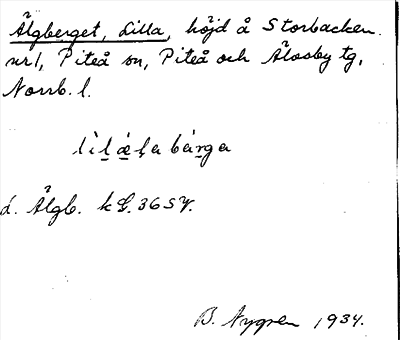 Älgberget, Lilla, höjd å Storbacken
nr 1, Piteå sn, Piteå och Älvsby tg,
Norrb. l.
lìlǽlabárga
d. Älgb. k G. 36 SV.
B. Nygren 1934.